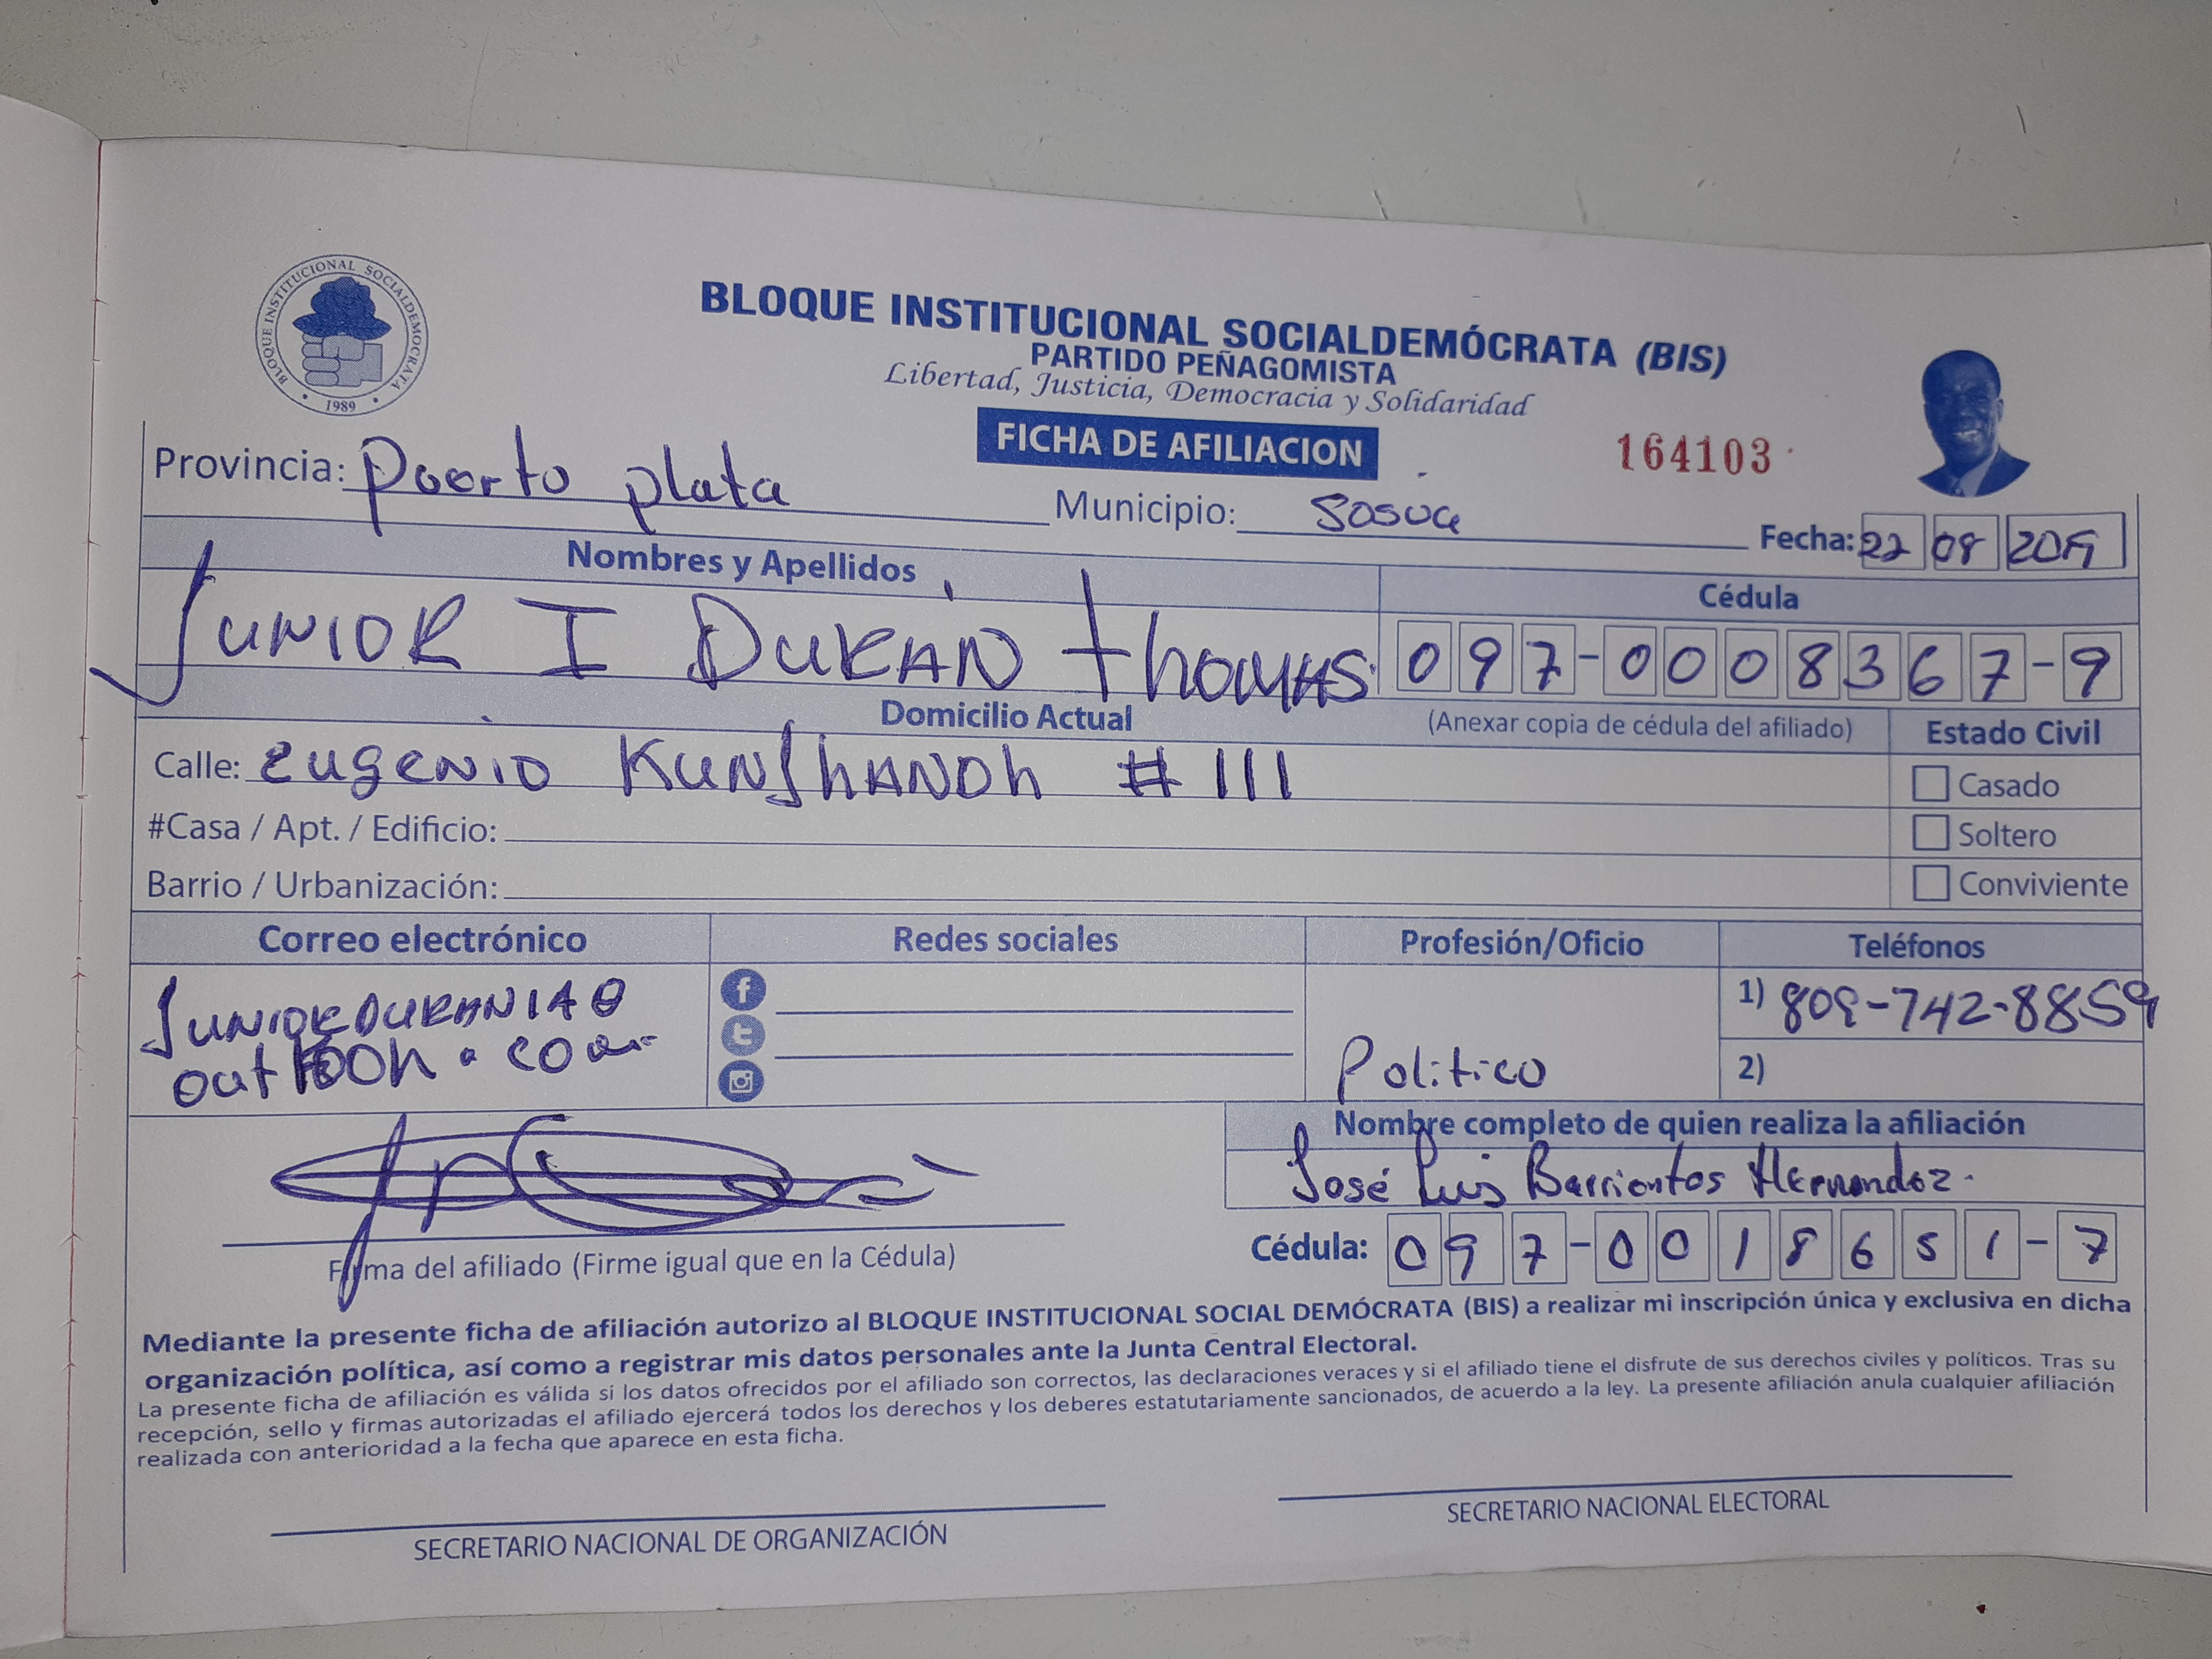 BLOQUE INSTITUCIONAL SOCIALDEMOCRATA
1989
BLOQUE INSTITUCIONAL SOCIALDEMÓCRATA (BIS)
PARTIDO PEÑAGOMISTA
Libertad, Justicia, Democracia y Solidaridad
FICHA DE AFILIACION
164103
Provincia: Poerto plata Municipio: Sosua Fecha: 22 08 2019
Nombres y Apellidos
Cédula
JUNIOR I DURÁN thomas 097-0008367-9
Domicilio Actual (Anexar copia de cédula del afiliado) Estado Civil
Calle: eugenio # 111
Casado
#Casa / Apt. / Edificio:
Soltero
Barrio / Urbanización:
Conviviente
Correo electrónico Redes sociales Profesión/Oficio Teléfonos
JUNIORDURAN
1) 809-742-8859
Politico
2)
Nombre completo de quien realiza la afiliación
José Luis Barrientos Hernandez.
Cédula: 097-0018651-7
Firma del afiliado (Firme igual que en la Cédula)
Mediante la presente ficha de afiliación autorizo al BLOQUE INSTITUCIONAL SOCIAL DEMÓCRATA (BIS) a realizar mi inscripción única y exclusiva en dicha
organización política, así como a registrar mis datos personales ante la Junta Central Electoral.
La presente ficha de afiliación es válida si los datos ofrecidos por el afiliado son correctos, las declaraciones veraces y si el afiliado tiene el disfrute de sus derechos civiles y políticos. Tras su
recepción, sello y firmas autorizadas el afiliado ejercerá todos los derechos y los deberes estatutariamente sancionados, de acuerdo a la ley. La presente afiliación anula cualquier afiliación
realizada con anterioridad a la fecha que aparece en esta ficha.
SECRETARIO NACIONAL DE ORGANIZACIÓN
SECRETARIO NACIONAL ELECTORAL